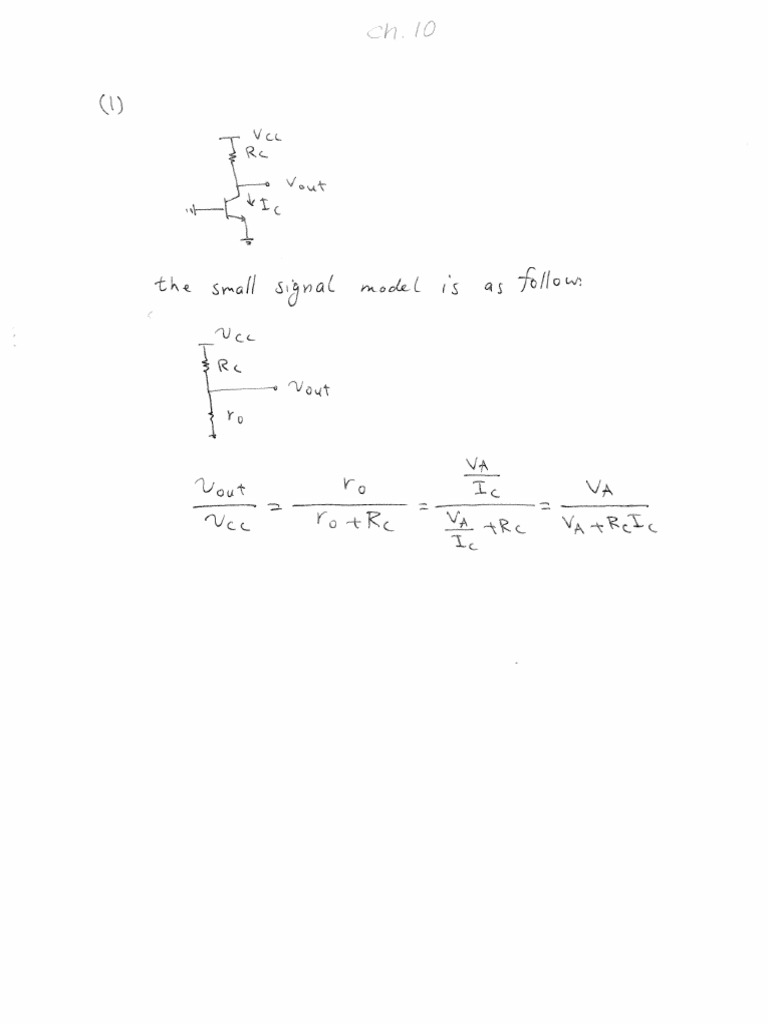 ch. 10
(1)
Vcc
Rc
Vout
Ic
the small signal model is as follow:
vcc
Rc
vout
ro
vout / vcc = ro / (ro + Rc) = (VA / Ic) / (VA / Ic + Rc) = VA / (VA + RcIc)